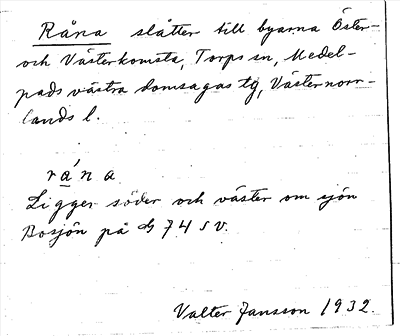 Råna slåtter till byarna Öster-
och Västerkomsta, Torps sn, Medel-
pads västra domsagas tg, Västernorr-
lands l.
råna
Ligger söder och väster om sjön
Bosjön på 74 SV.
Valter Jansson 1932.